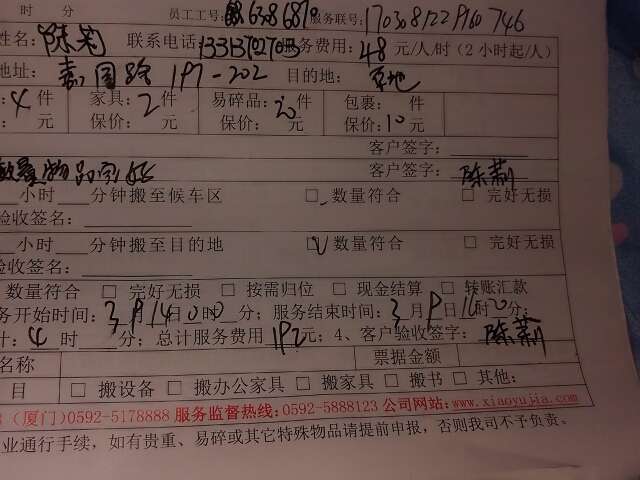 时 分 员工工号: 服务联号:
姓名: 陈莉 联系电话 服务费用: 48 元/人/时(2小时起/人)
地址: 197-202 目的地: 草地
: 4 件 家具: 2 件 易碎品: 20 件 包裹: 件
元 保价: 元 保价: 元 保价: 10 元
客户签字:
物品完好 客户签字: 陈莉
小时 分钟搬至候车区 □ 数量符合 □ 完好无损
验收签名:
小时 分钟搬至目的地 □ 数量符合 □ 完好无损
验收签名:
数量符合 □ 完好无损 □ 按需归位 □ 现金结算 □ 转账汇款
务开始时间: 3月14日 分; 服务结束时间: 3月 日 分;
计: 4 时 分; 总计服务费用 192元; 4、客户验收签字: 陈莉
名称 票据金额
目 □ 搬设备 □ 搬办公家具 □ 搬家具 □ 搬书 □ 其他:
(厦门)0592-5178888 服务监督热线:0592-5888123 公司网站:www.xiaoyujia.com
业通行手续,如有贵重、易碎或其它特殊物品请提前申报,否则我司不予负责。